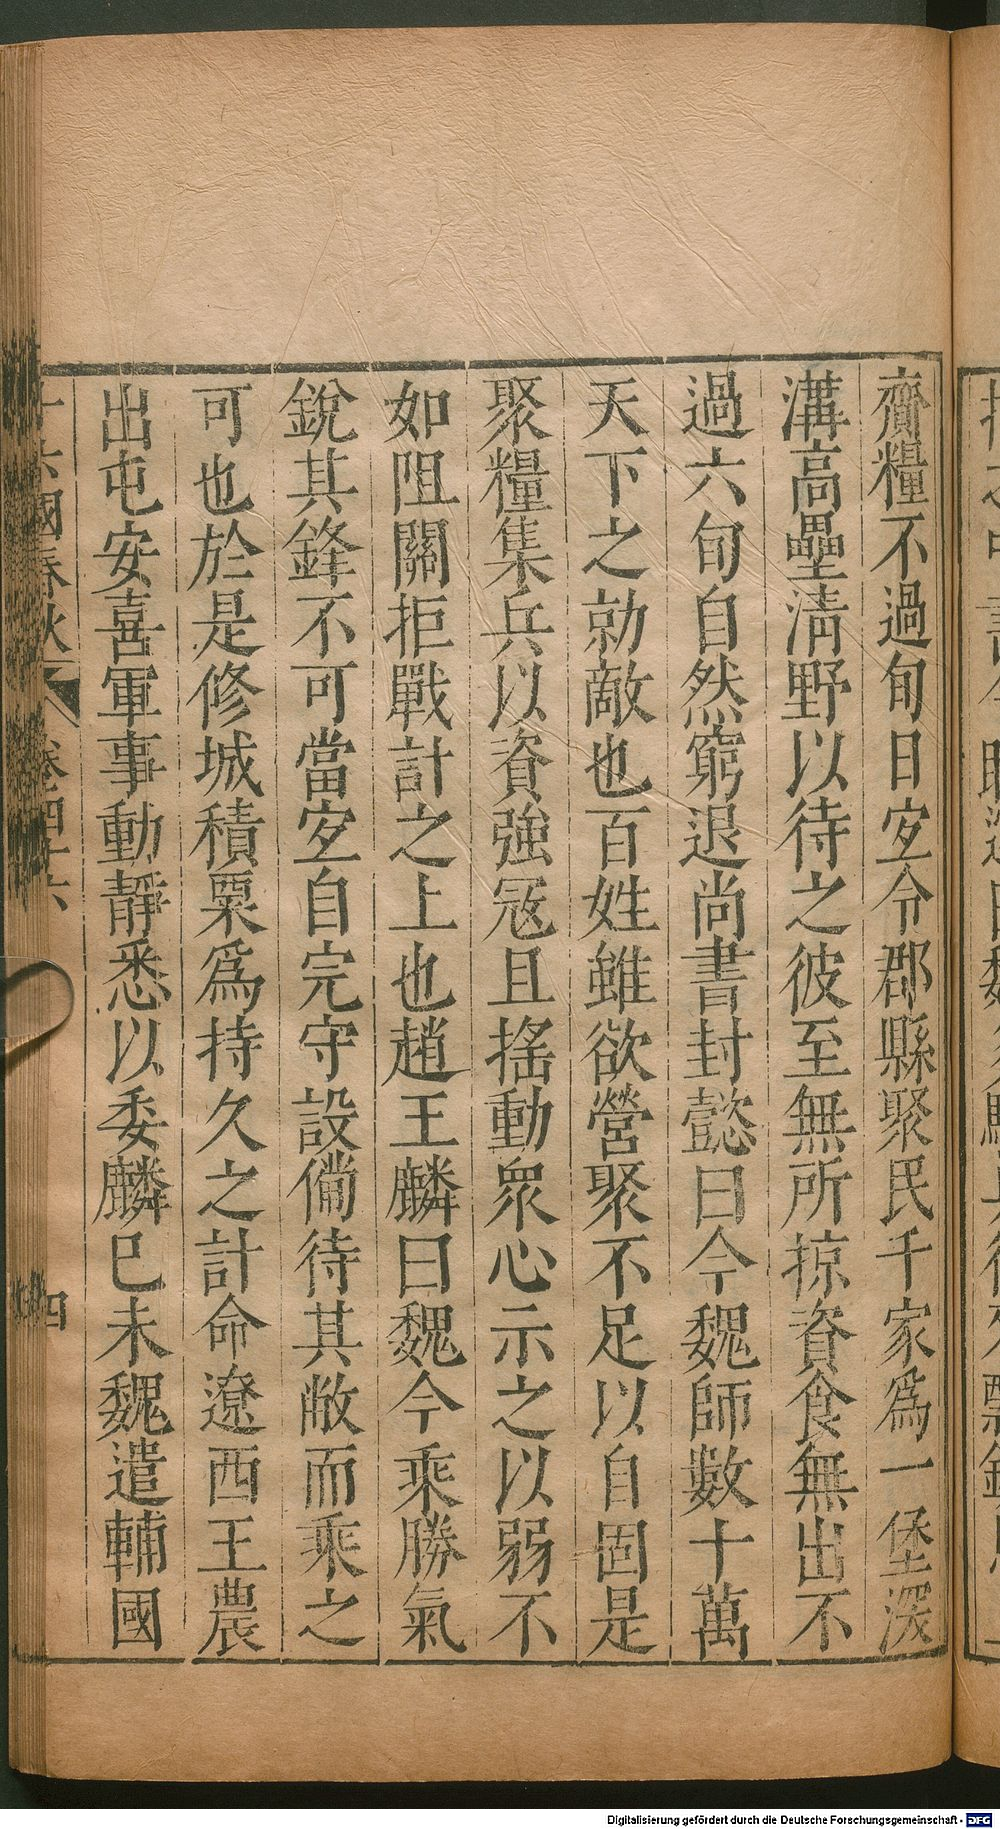 齎糧不過旬日宐令郡縣聚民千家爲一堡深
溝高壘淸野以待之彼至無所掠資食無出不
過六旬自然窮退尚書封懿曰今魏師數十萬
天下之勍敵也百姓雖欲營聚不足以自固是
聚糧集兵以資強冦且搖動衆心示之以弱不
如阻關拒戰計之上也趙王麟曰魏今乘勝氣
銳其鋒不可當宐自完守設備待其敝而乘之
可也於是修城積粟爲持久之計命遼西王農
出屯安喜軍事動靜悉以委麟巳未魏遣輔國
十六國春秋 卷四十六 四
Digitalisierung gefördert durch die Deutsche Forschungsgemeinschaft - DFG